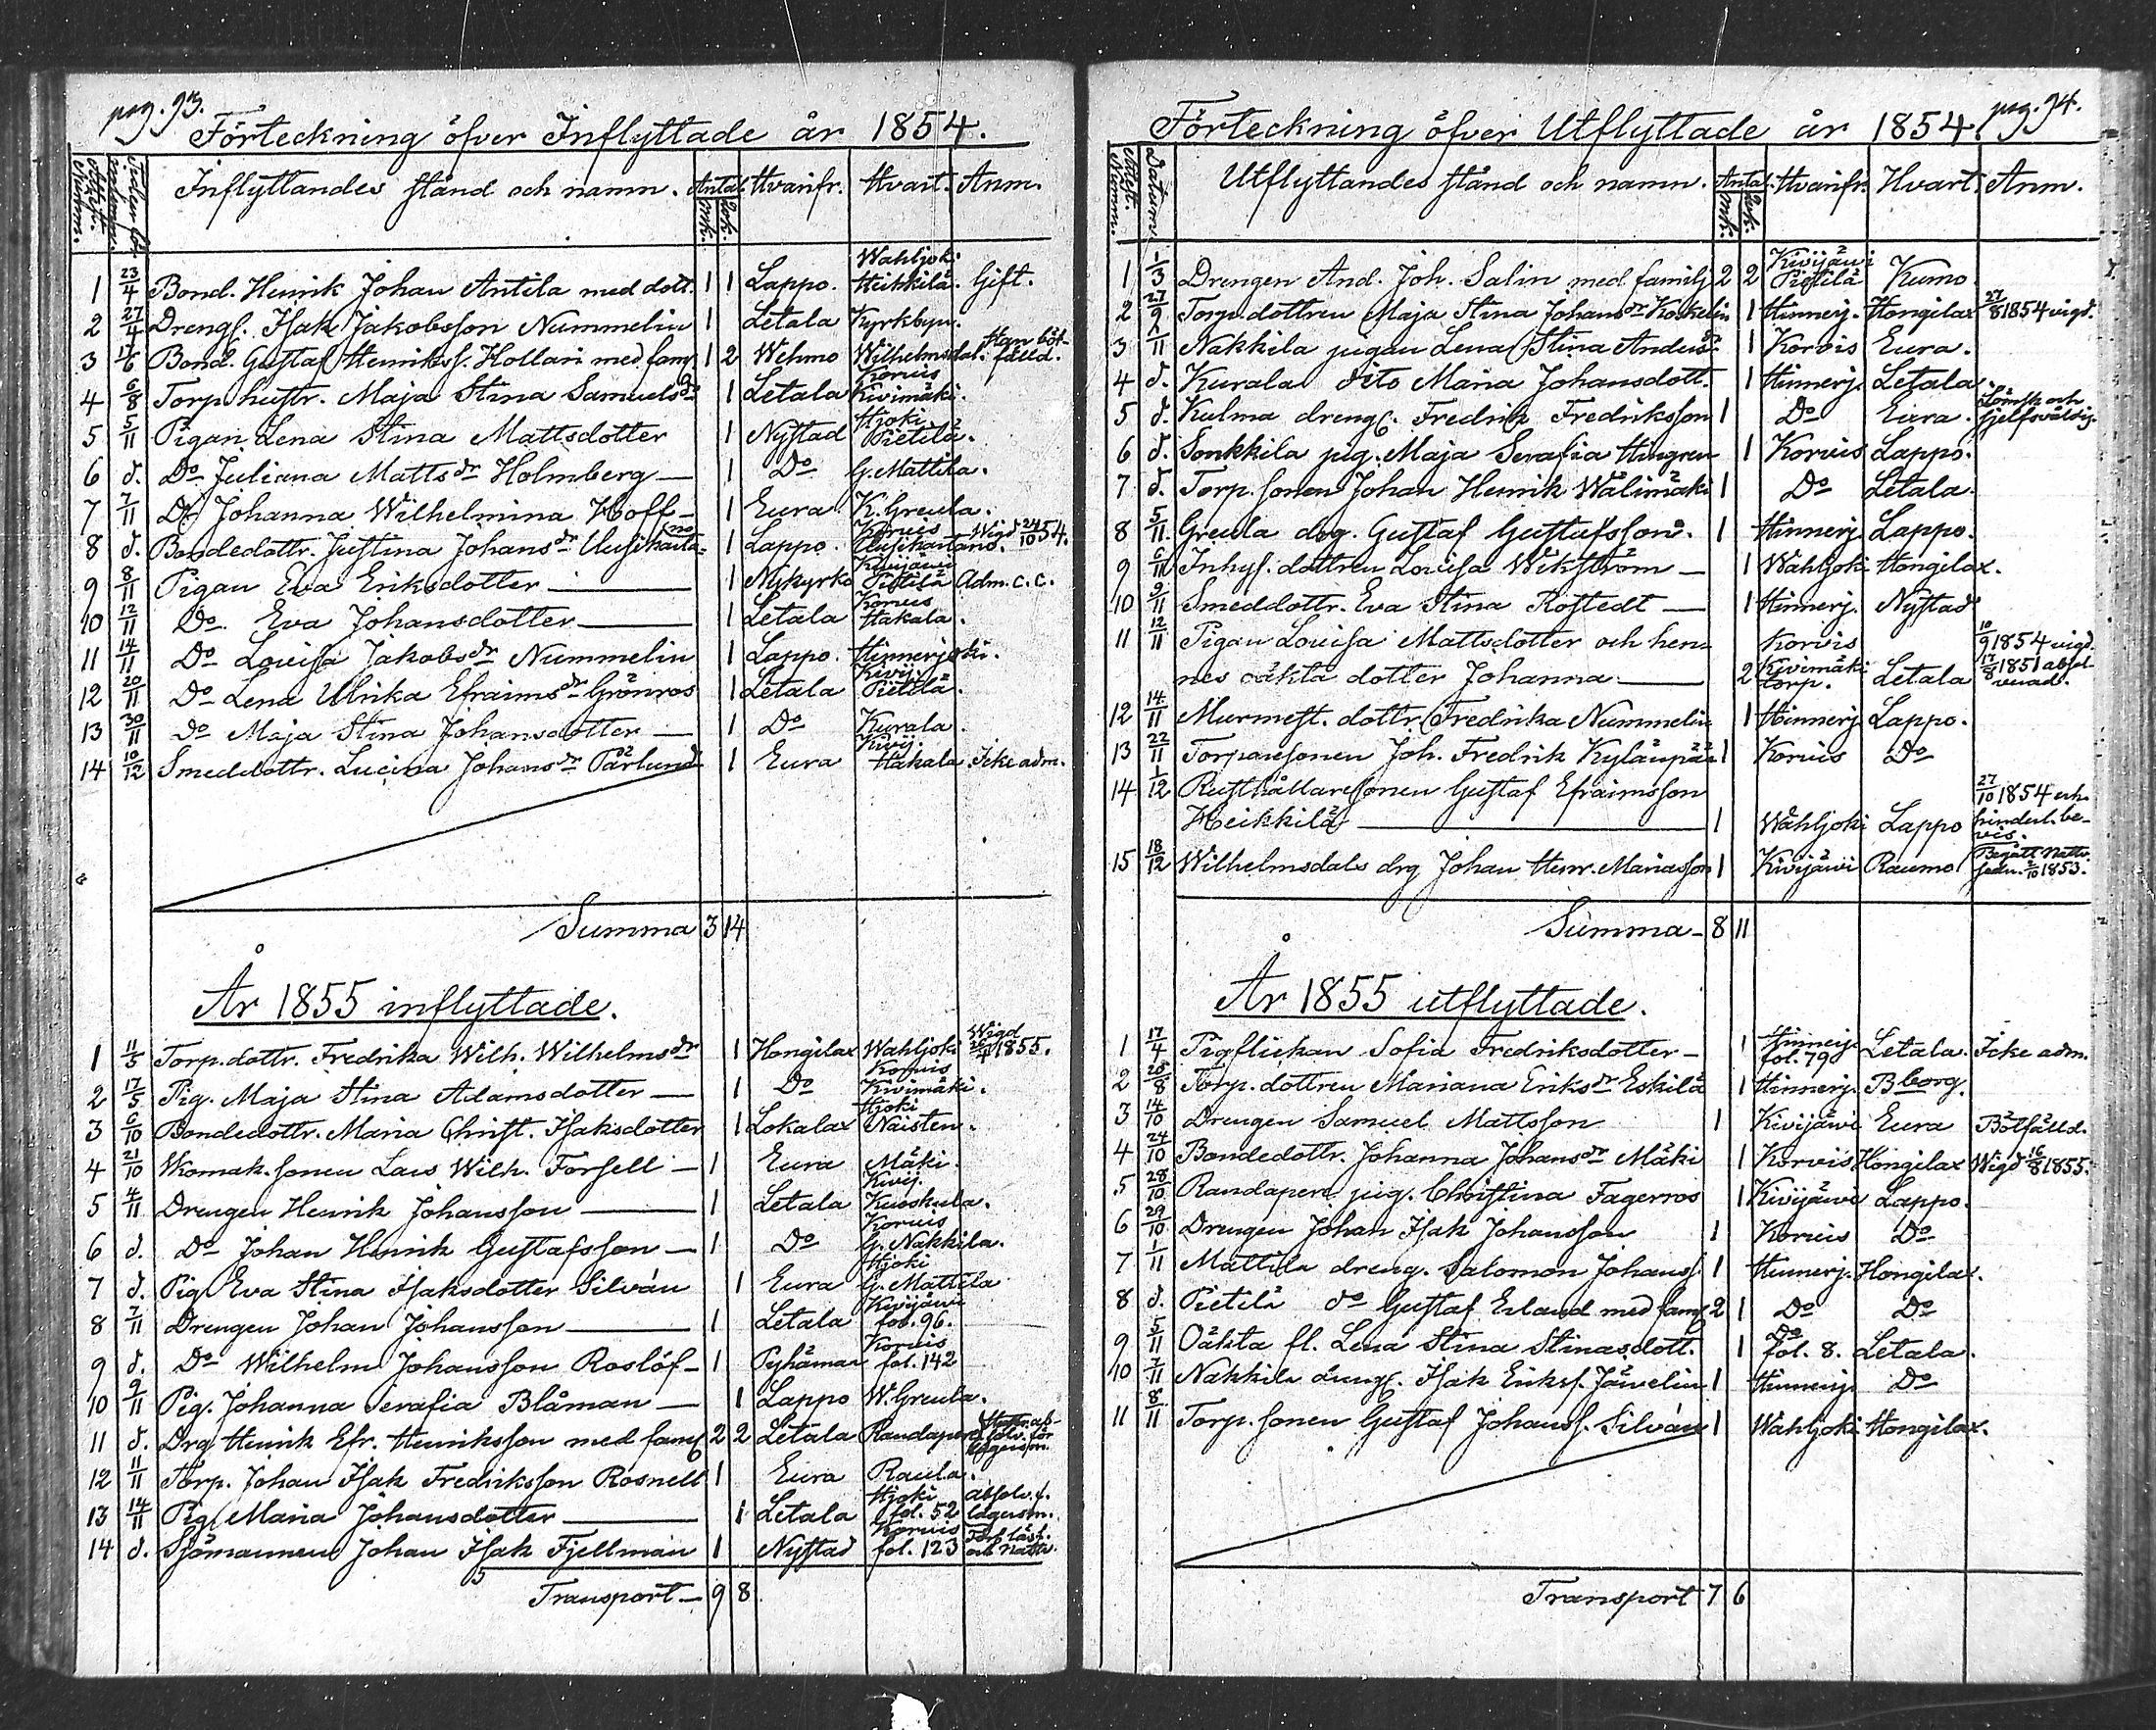 pag. 93.
Förteckning öfver Inflyttade år 1854.
Inflyttandes stånd och namn. Antal Hvarifr. Hvart. Anm.
1 23/4 Bond. Henrik Johan Antila med dott. 1 1 Lappo. Wahljoki Heikkilä. Gift.
2 27/4 Drengs. Isak Jakobsson Nummelin 1 Letala Kyrkbyn.
3 Bond. Gustaf Henrikss. Hollari med famj 1 2 Wehmo Wilhelmsdal. Han böt-fälld.
4 6/8 Torp. hustr. Maja Stina Samuelsdr 1 Letala Korvis Kivimäki.
5 5/11 Pigan Lena Stina Mattsdotter 1 Nystad Hjoki Pietilä.
6 d. Do Juliana Mattsdr Holmberg — 1 Do G. Mattila.
7 7/11 Do Johanna Wilhelmina Hoff — 1 Eura K. Greula.
8 d. Bondedottr. Justina Johansdr Uusikarta-no 1 Lappo. Korvis Uusikartano. Wigd 24/10 54.
9 8/11 Pigan Eva Eriksdotter — 1 Nykyrko Kivijäwi Pietilä Adm. c. c.
10 12/11 Do Eva Johansdotter — 1 Letala Korvis Hakala.
11 14/11 Do Lovisa Jakobsdr Nummelin 1 Lappo. Hinnerjoki.
12 20/11 Do Lena Ulrika Efraimsdr Grönros 1 Letala Kivij. Pietilä.
13 30/11 Do Maja Stina Johansdotter — 1 Do Kurala.
14 10/12 Smeddottr. Lucina Johansdr Pärlund 1 Eura Kivij. Hakala. Icke adm.
Summa 3 14
År 1855 inflyttade.
1 11/5 Torp. dottr. Fredrika Wilh. Wilhelmsdr 1 Hongilax Wahljoki Wigd 1855.
2 17/5 Pig. Maja Stina Adamsdotter — 1 Do Korvis Kivimäki.
3 6/10 Bondedottr. Maria Christ. Isaksdotter 1 Lokalax Hjoki Naisten.
4 21/10 Skomak. sonen Lars Wilh. Forsell — 1 Eura Mäki.
5 4/11 Drengen Henrik Johansson — 1 Letala Kivij. Kuoskula.
6 d. Do Johan Henrik Gustafsson — 1 Do Korvis G. Nakkila.
7 d. Pig. Eva Stina Isaksdotter Silván 1 Eura Hjoki G. Mattila
8 7/11 Drengen Johan Johansson — 1 Letala Kivijäwi fol. 96.
9 d. Do Wilhelm Johansson Roslöf — 1 Pyhämaa Korvis fol. 142
10 9/11 Pig. Johanna Serafia Blåman — 1 Lappo W. Greula.
11 d. Drg Henrik Efr. Henriksson med famj 2 2 Letala Randapere
12 11/11 Torp. Johan Isak Fredriksson Rosnell 1 Eura Raula.
13 14/11 Pig. Maria Johansdotter — 1 Letala Hjoki fol. 52 absolv. f. lägersm.
14 d. Sjömannen Johan Isak Fjellman 1 Nystad Korvis fol. 123
Transport — 9 8
pag. 94.
Förteckning öfver Utflyttade år 1854.
Datum Utflyttandes stånd och namn. Antal. Hvarifr. Hvart. Anm.
1 1/3 Drengen And. Joh. Salin med familj 2 2 Kivijäwi Pietilä Kumo.
2 27/9 Torp. dottren Maja Stina Johansdr Koskelin 1 Hinnerj. Hongilax 27/8 1854 vigd.
3 1/11 Nakkila pigan Lena Stina Andersdr 1 Korvis Eura.
4 d. Kurala dito Maria Johansdott. 1 Hinnerj. Letala.
5 d. Kulma drengs. Fredrik Fredriksson 1 Do Eura. och sjelfsvåldig.
6 d. Sonkkila pig. Maja Serafia Hingren 1 Korvis Lappo.
7 d. Torp. sonen Johan Henrik Wälimäki 1 Do Letala.
8 5/11 Greula drg. Gustaf Gustafsson. 1 Hinnerj. Lappo.
9 6/11 Inhys. dottren Lovisa Wikström — 1 Wahljoki Hongilax.
10 9/11 Smeddottr. Eva Stina Rostedt — 1 Hinnerj. Nystad
11 12/11 Pigan Lovisa Mattsdotter och hen- Korvis 10/9 1854 vigd.
nes oäkta dotter Johanna — 2 Kivimäki torp. Letala 17/8 1851 absol-verad.
12 14/11 Murmest. dottr. Fredrika Nummelin 1 Hinnerj. Lappo.
13 22/11 Torparesonen Joh. Fredrik Kylänpää 1 Korvis Do
14 1/12 Rusthållaresonen Gustaf Efraimsson 27/10 1854 erh.
Heikkilä — 1 Wahljoki Lappo hinderl. be-vis.
15 18/12 Wilhelmsdals drg Johan Henr. Mariasson 1 Kivijäwi Raumo Begått Nattv. sedn. 2/10 1853.
Summa — 8 11
År 1855 utflyttade.
1 17/4 Pigflickan Sofia Fredriksdotter — 1 Hinnerj. fol. 79 Letala. Icke adm.
2 25/8 Torp. dottren Mariana Eriksdr Eskilä 1 Hinnerj. Bborg.
3 14/10 Drengen Samuel Mattsson 1 Kivijäwi Eura Bötfälld.
4 24/10 Bondedottr. Johanna Johansdr Mäki 1 Korvis Hongilax Wigd 16/8 1855.
5 28/10 Randapere pig. Christina Fagerros 1 Kivijäwi Lappo.
6 29/10 Drengen Johan Isak Johansson 1 Korvis Do
7 1/11 Mattila dreng. Salomon Johanss. 1 Hinnerj. Hongilax.
8 d. Pietilä do Gustaf Erland med famj 2 1 Do Do
9 5/11 Oäkta fl. Lena Stina Stinasdott. 1 Do fol. 8. Letala.
10 7/11 Nakkila drengs. Isak Erikss. Jäwelin 1 Hinnerj. Do
11 8/11 Torp. sonen Gustaf Johanss. Silván 1 Wahljoki Hongilax.
Transport 7 6